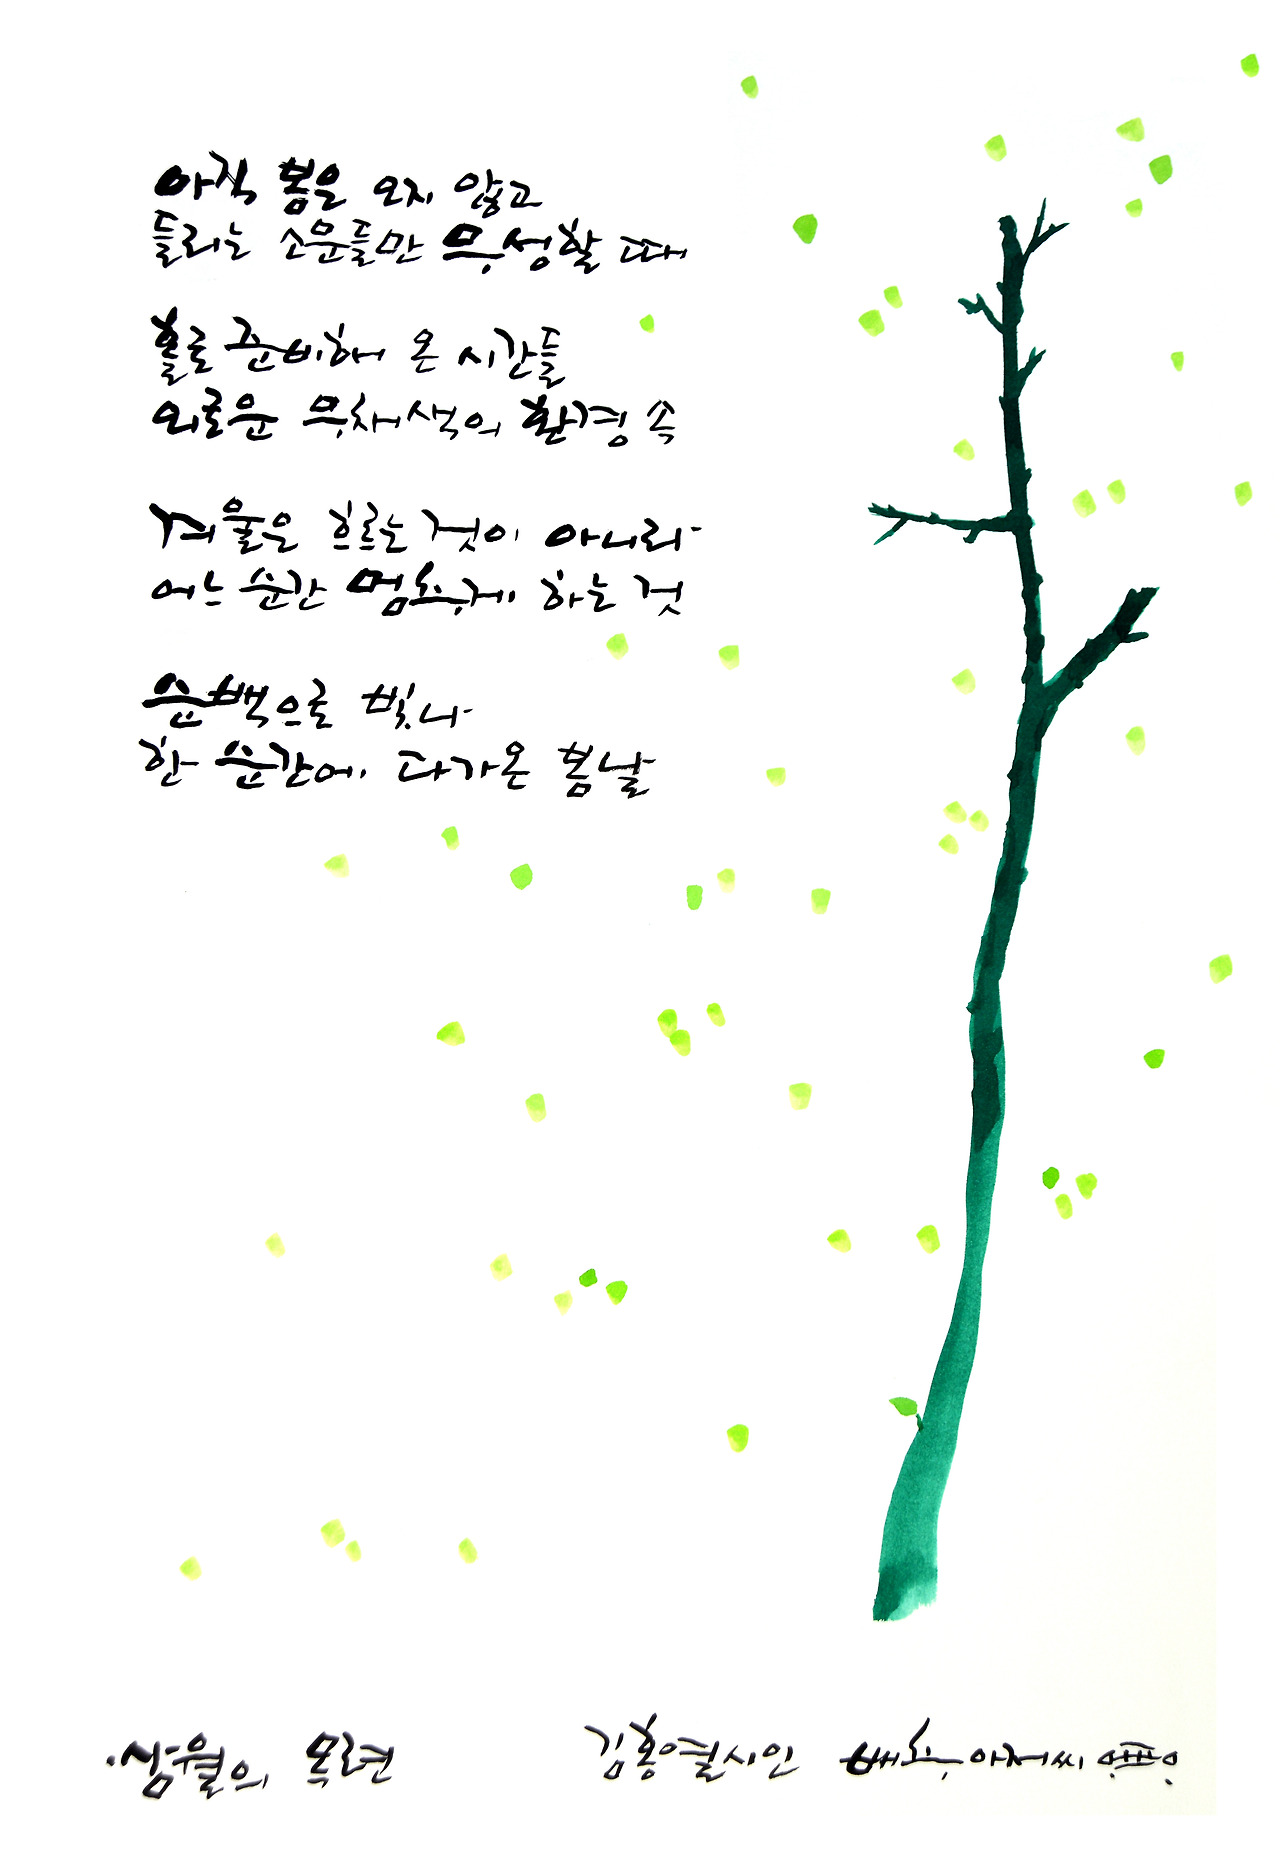 아직 봄은 오지 않고
들리는 소문들만 무성할 때
홀로 준비해 온 시간들
외로운 무채색의 환경 속
겨울은 흐르는 것이 아니라
어느 순간 멈추게 하는 것
순백으로 빛나
한 순간에 다가온 봄날
삼월의 목련
김홍열시인